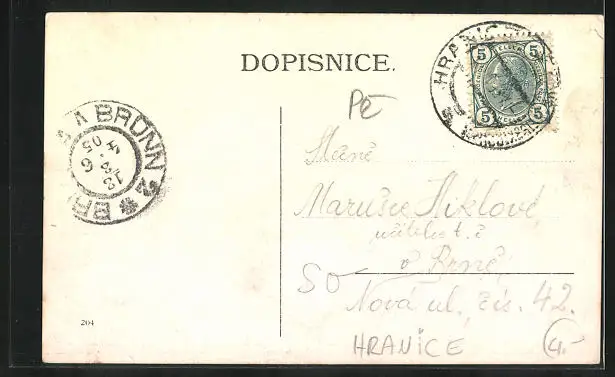 DOPISNICE.
HRANIC
5 5
5 5
BRÜNN 2 * BR
13 6
4.3
05
Pč
Slečně
Marušce Hiklové
učitelce t. č.
v Brně,
50
Nová ul. čís. 42.
204
HRANICE
4.-